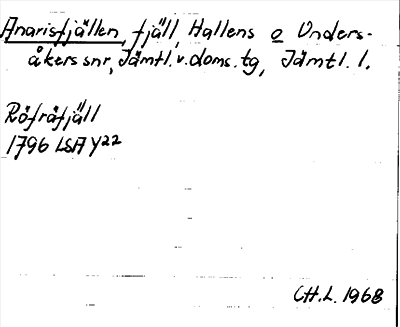 Anarisfjällen, fjäll, Hallens o Unders-
åkers snr, Jämtl. v. doms. tg, Jämtl. l.
Röfräfjäll
1796 LSA Y22
CH.L. 1968